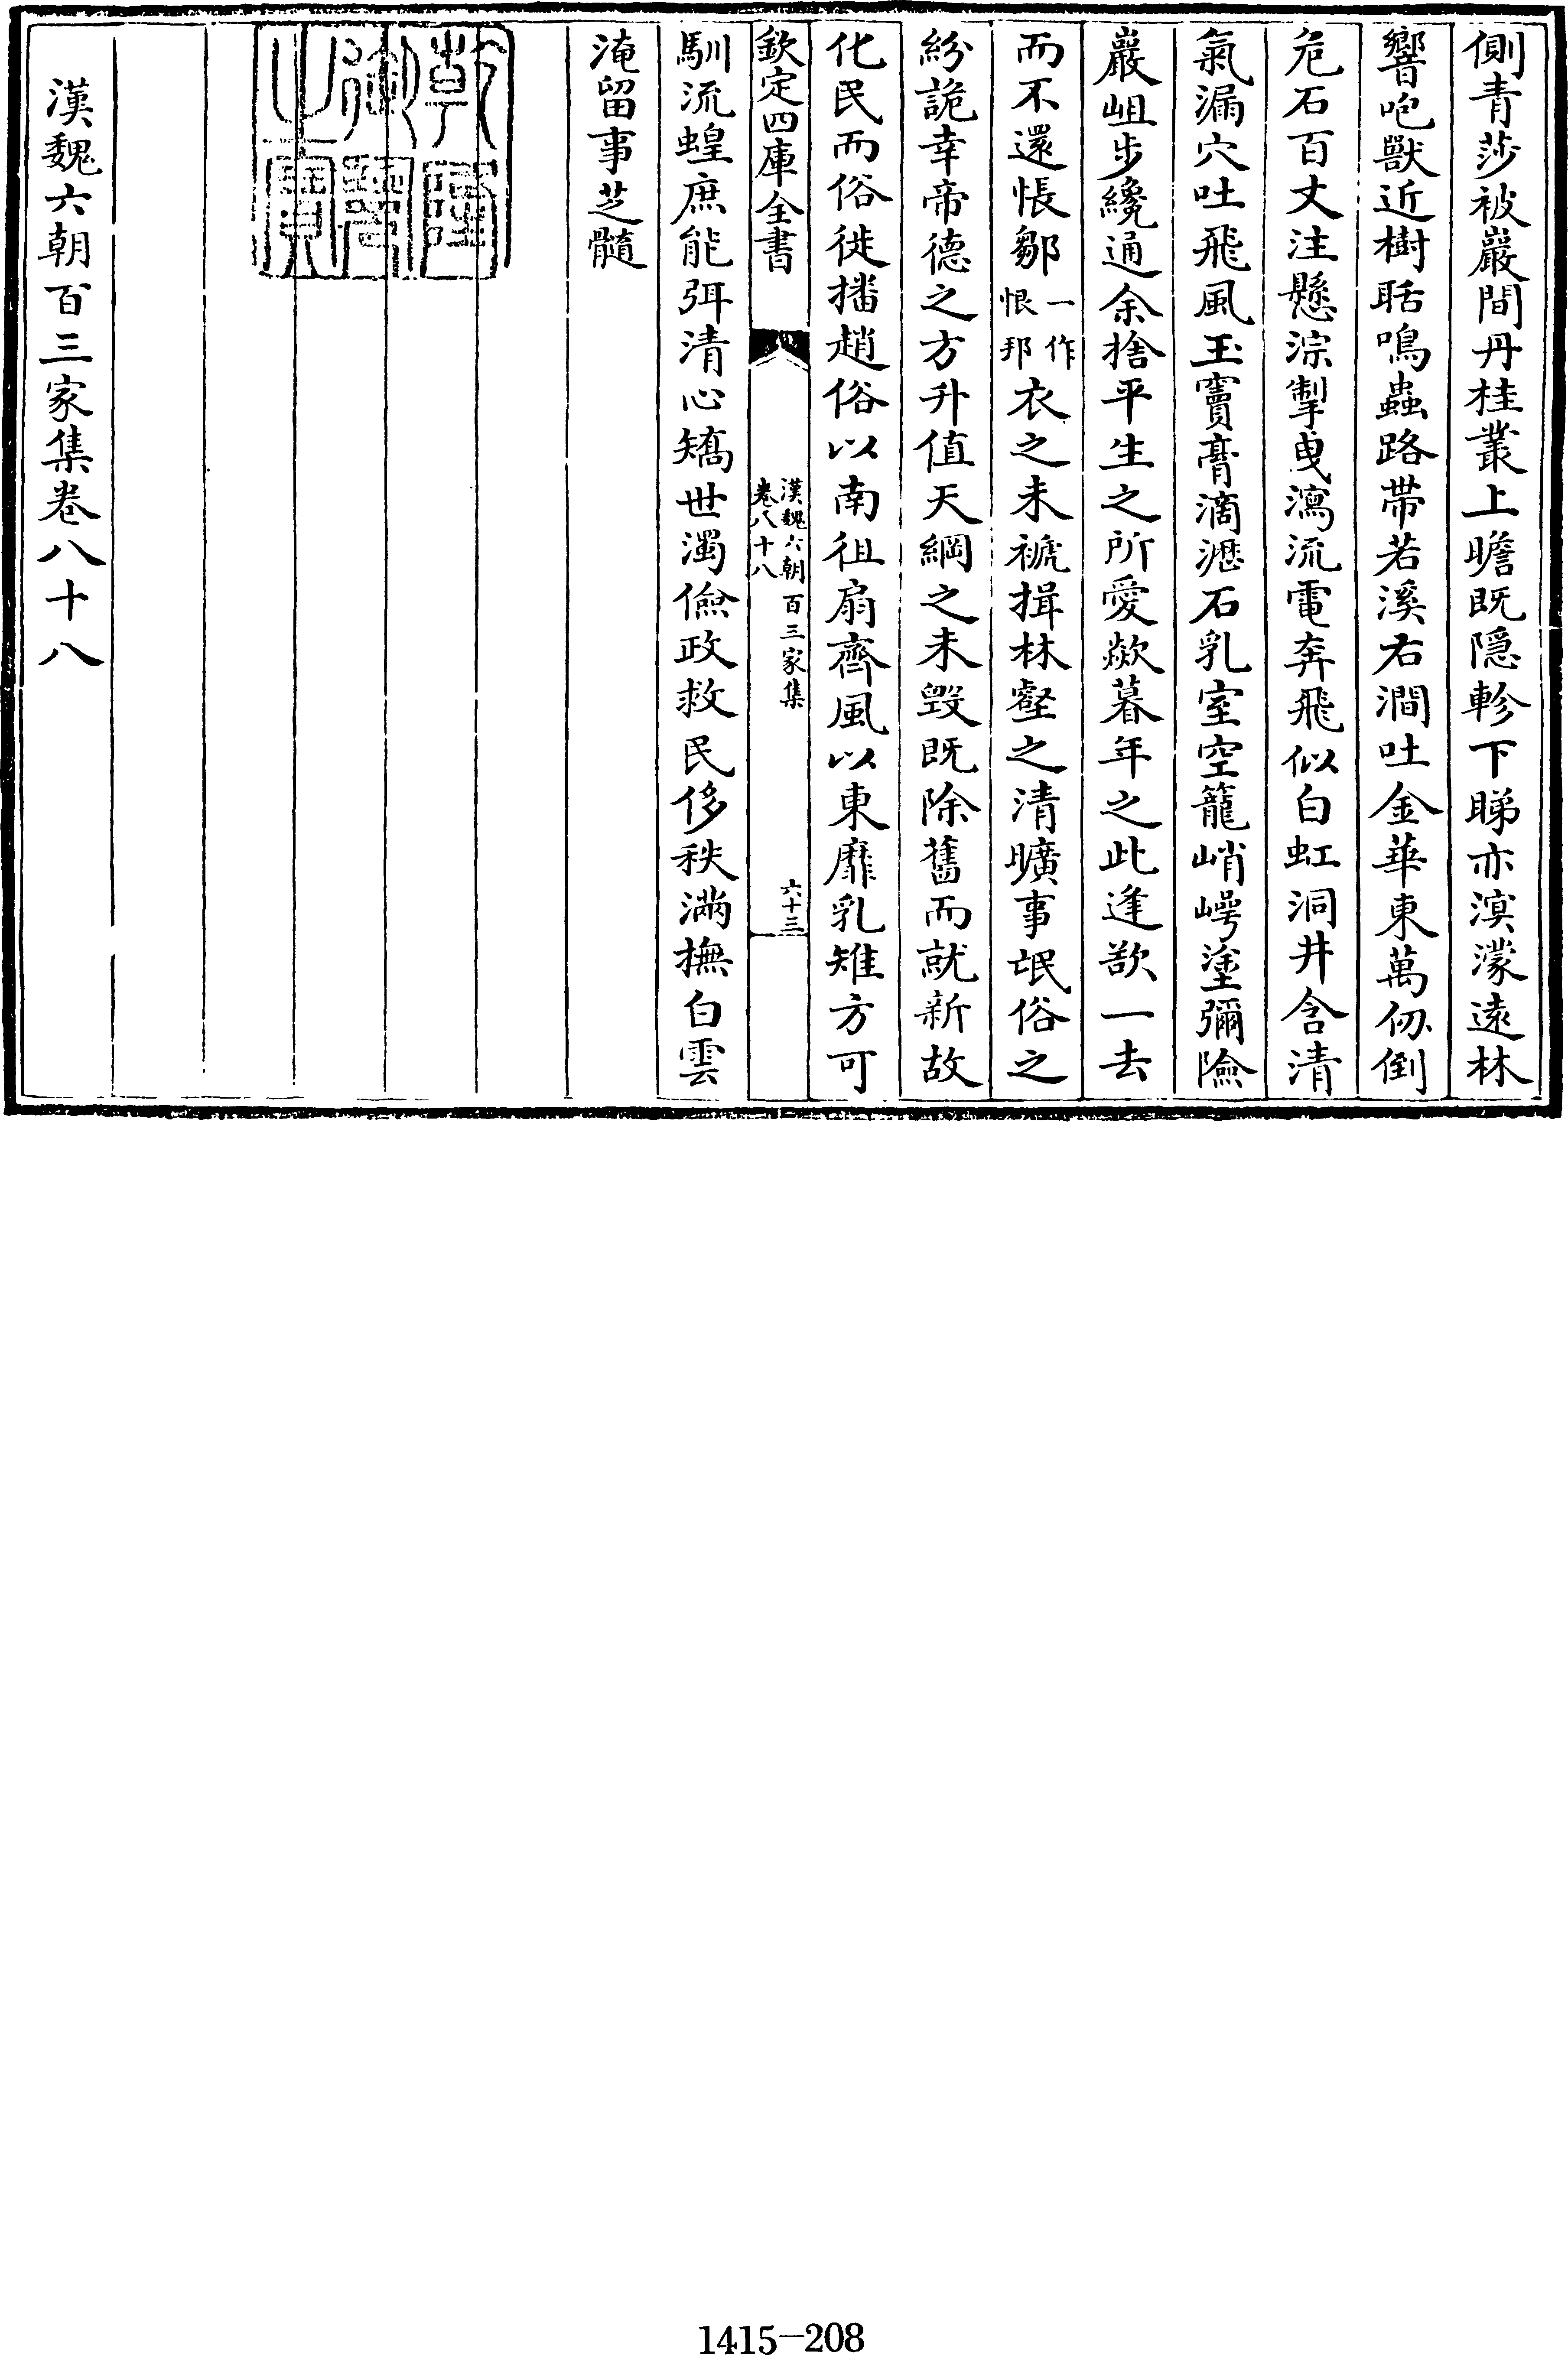 側青莎被巖間丹桂叢上瞻既隱軫下睇亦溟濛遠林
響咆獸近樹聒鳴蟲路帶若溪右澗吐金華東萬仞倒
危石百丈注懸淙掣曳瀉流電奔飛似白虹洞井含清
氣漏穴吐飛風玉竇膏滴瀝石乳室空籠峭崿塗彌險
巖岨步纔通余捨平生之所愛歘暮年之此逢欲一去
而不還悵鄒一作恨邦衣之未褫揖林壑之清曠事氓俗之
紛詭幸帝德之方升值天綱之未毀既除舊而就新故
化民而俗徙播趙俗以南徂扇齊風以東靡乳雉方可
欽定四庫全書
漢魏六朝百三家集
卷八十八
六十三
馴流蝗庶能弭清心矯世濁儉政救民侈秩滿撫白雲
淹留事芝髓
乾隆御覽之寶
漢魏六朝百三家集卷八十八
1415-208